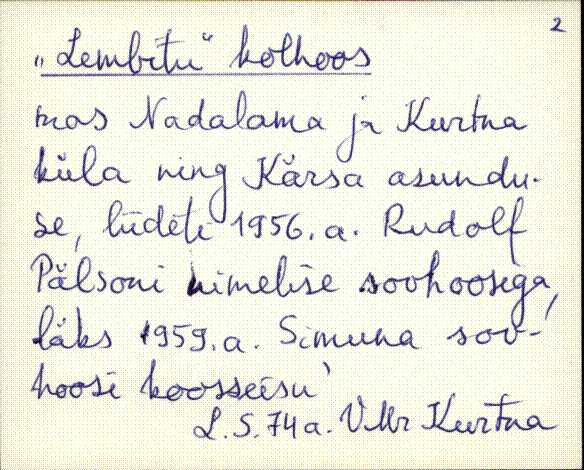 2
„Lembitu“ kolhoos
mas Nadalama ja Kurtna
küla ning Kärsa asundu-
se, liideti 1956. a. Rudolf
Pälsoni nimelise sovhoosiga,
läks 1959. a. Simuna sov-
hoosi koosseisu
L. S. 74 a. VMr Kurtna